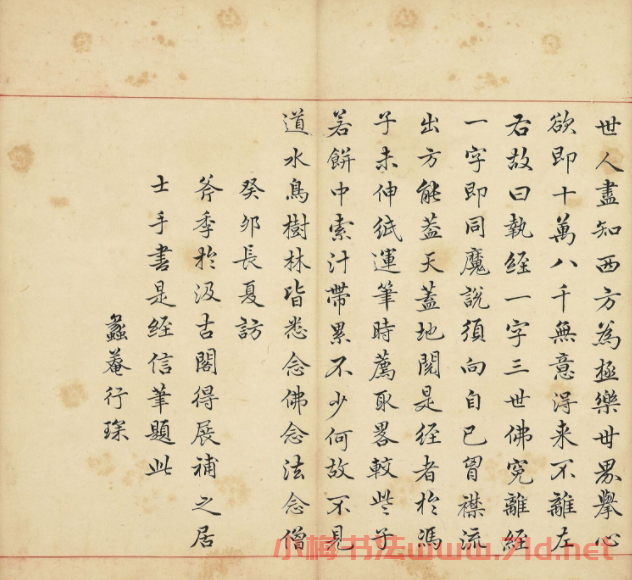 世人盡知西方為極樂世界擧心
欲即十萬八千無意得来不離左
右故曰執經一字三世佛冤離經
一字即同魔說須向自己胷襟流
出方能葢天葢地閱是經者於馮
子未伸紙運筆時薦取畧較些子
若餅中索汁帶累不少何故不見
道水鳥樹林皆悉念佛念法念僧
癸卯長夏訪
斧季於汲古閣得展補之居
士手書是經信筆題此
蠡菴行琛
小梅书法www.71d.net